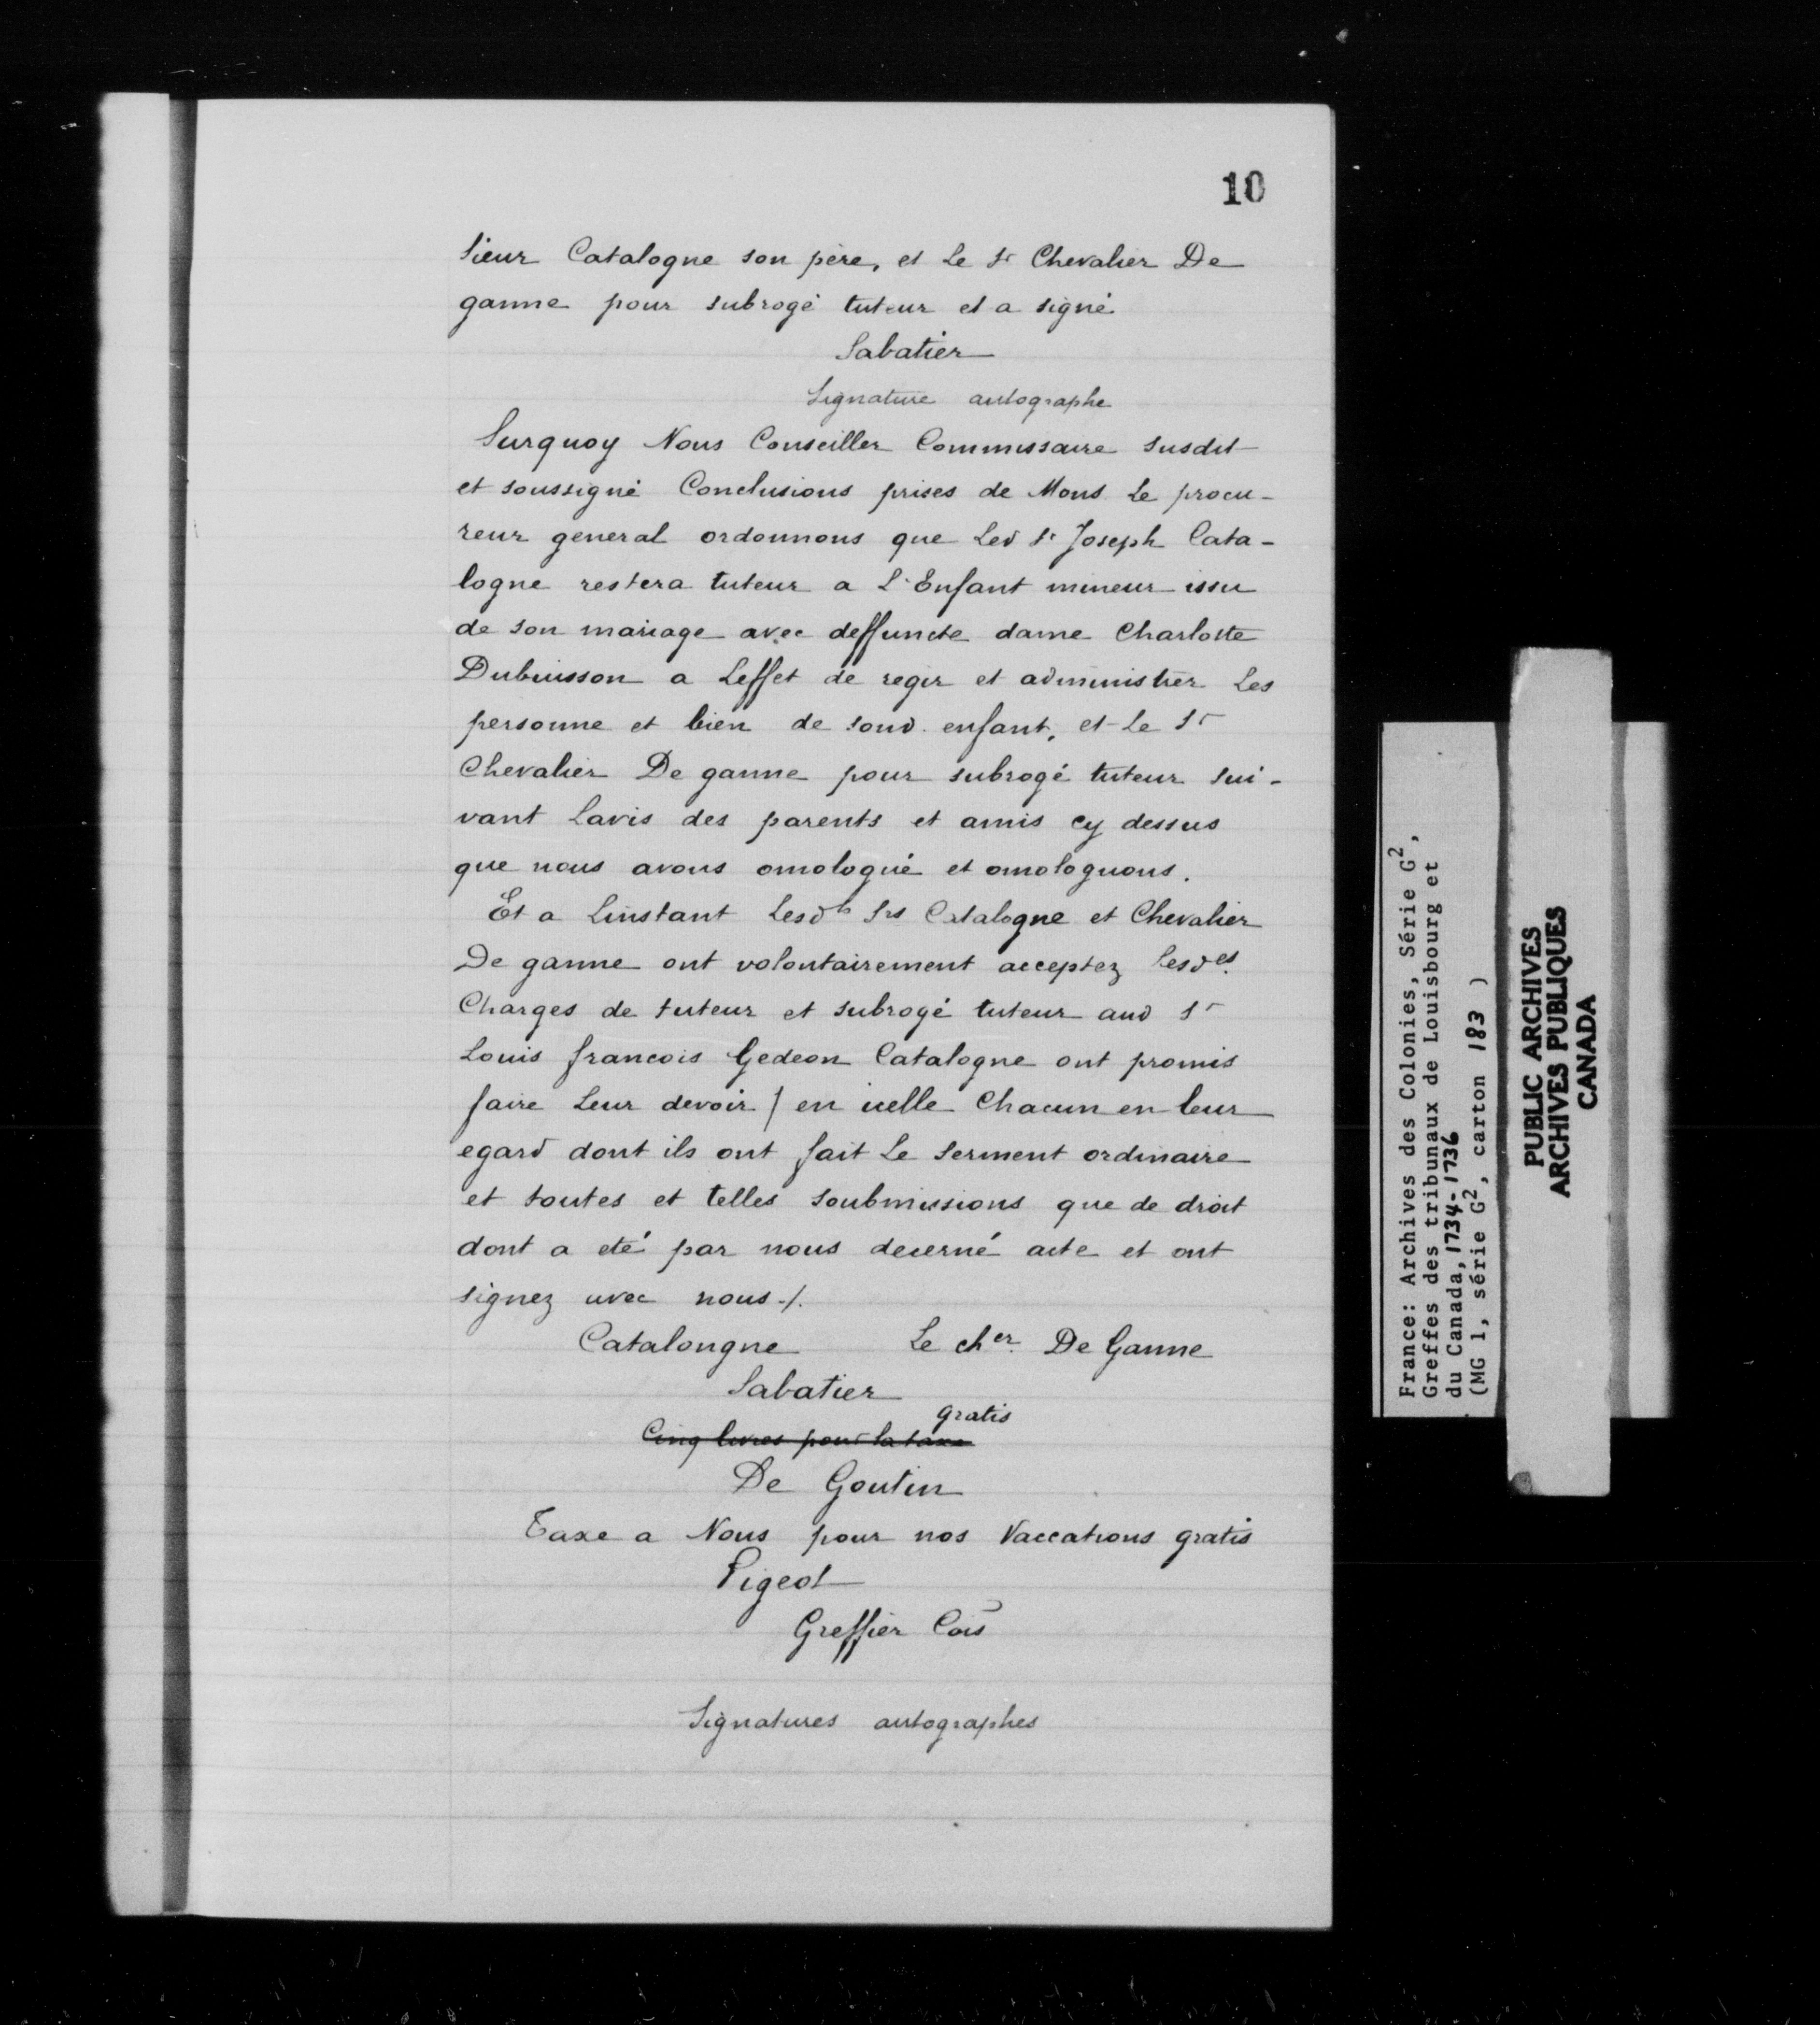 10
Sieur Catalogne son père, et Le Sr Chevalier De
ganne pour subrogé tuteur et a signé
Sabatier
Signature autographe
Surquoy Nous Conseiller Commissaire susdit
et soussigné Conclusions prises de Mons Le procu-
reur general ordonnons que Led Sr Joseph Cata-
logne restera tuteur a L'Enfant mineur issu
de son mariage avec deffuncte dame Charlotte
Dubuisson a Leffet de regir et administrer Les
personne et bien de sond. enfant, et Le Sr
Chevalier De ganne pour subrogé tuteur sui-
vant Lavis des parents et amis cy dessus
que nous avons omologué et omologuons.
Et a Linstant Lesds Srs Catalogne et Chevalier
De ganne ont volontairement acceptez Lesdes.
Charges de tuteur et subrogé tuteur aud Sr
Louis francois Gedeon Catalogne ont promis
faire Leur devoir / en icelle Chacun en leur
egard dont ils ont fait Le serment ordinaire
et toutes et telles soubmissions que de droit
dont a eté par nous decerné acte et ont
signez avec nous ./.
Catalongne Le cher. De Ganne
Sabatier
gratis
Cinq livres pour la taxe
De Goutin
Taxe a Nous pour nos Vaccations gratis
Pigeot
Greffier Cois
Signatures autographes
France: Archives des Colonies, Série G2,
Greffes des tribunaux de Louisbourg et
du Canada, 1734-1736
(MG 1, série G2, carton 183 )
PUBLIC ARCHIVES
ARCHIVES PUBLIQUES
CANADA